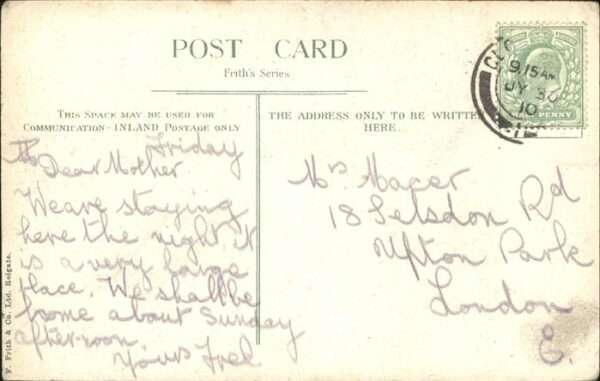 POST CARD
Frith's Series
THIS SPACE MAY BE USED FOR
COMMUNICATION - INLAND POSTAGE ONLY
THE ADDRESS ONLY TO BE WRITTEN
HERE.
9.15 AM
JY 30
10
HALFPENNY
Friday
Dear Mother
We are staying
here the night it
is a very large
place. We shall be
home about Sunday
after-noon.
Yours Fred
Mrs Macer
18 Selsdon Rd
Upton Park
London
E.
F. Frith & Co. Ltd. Reigate.